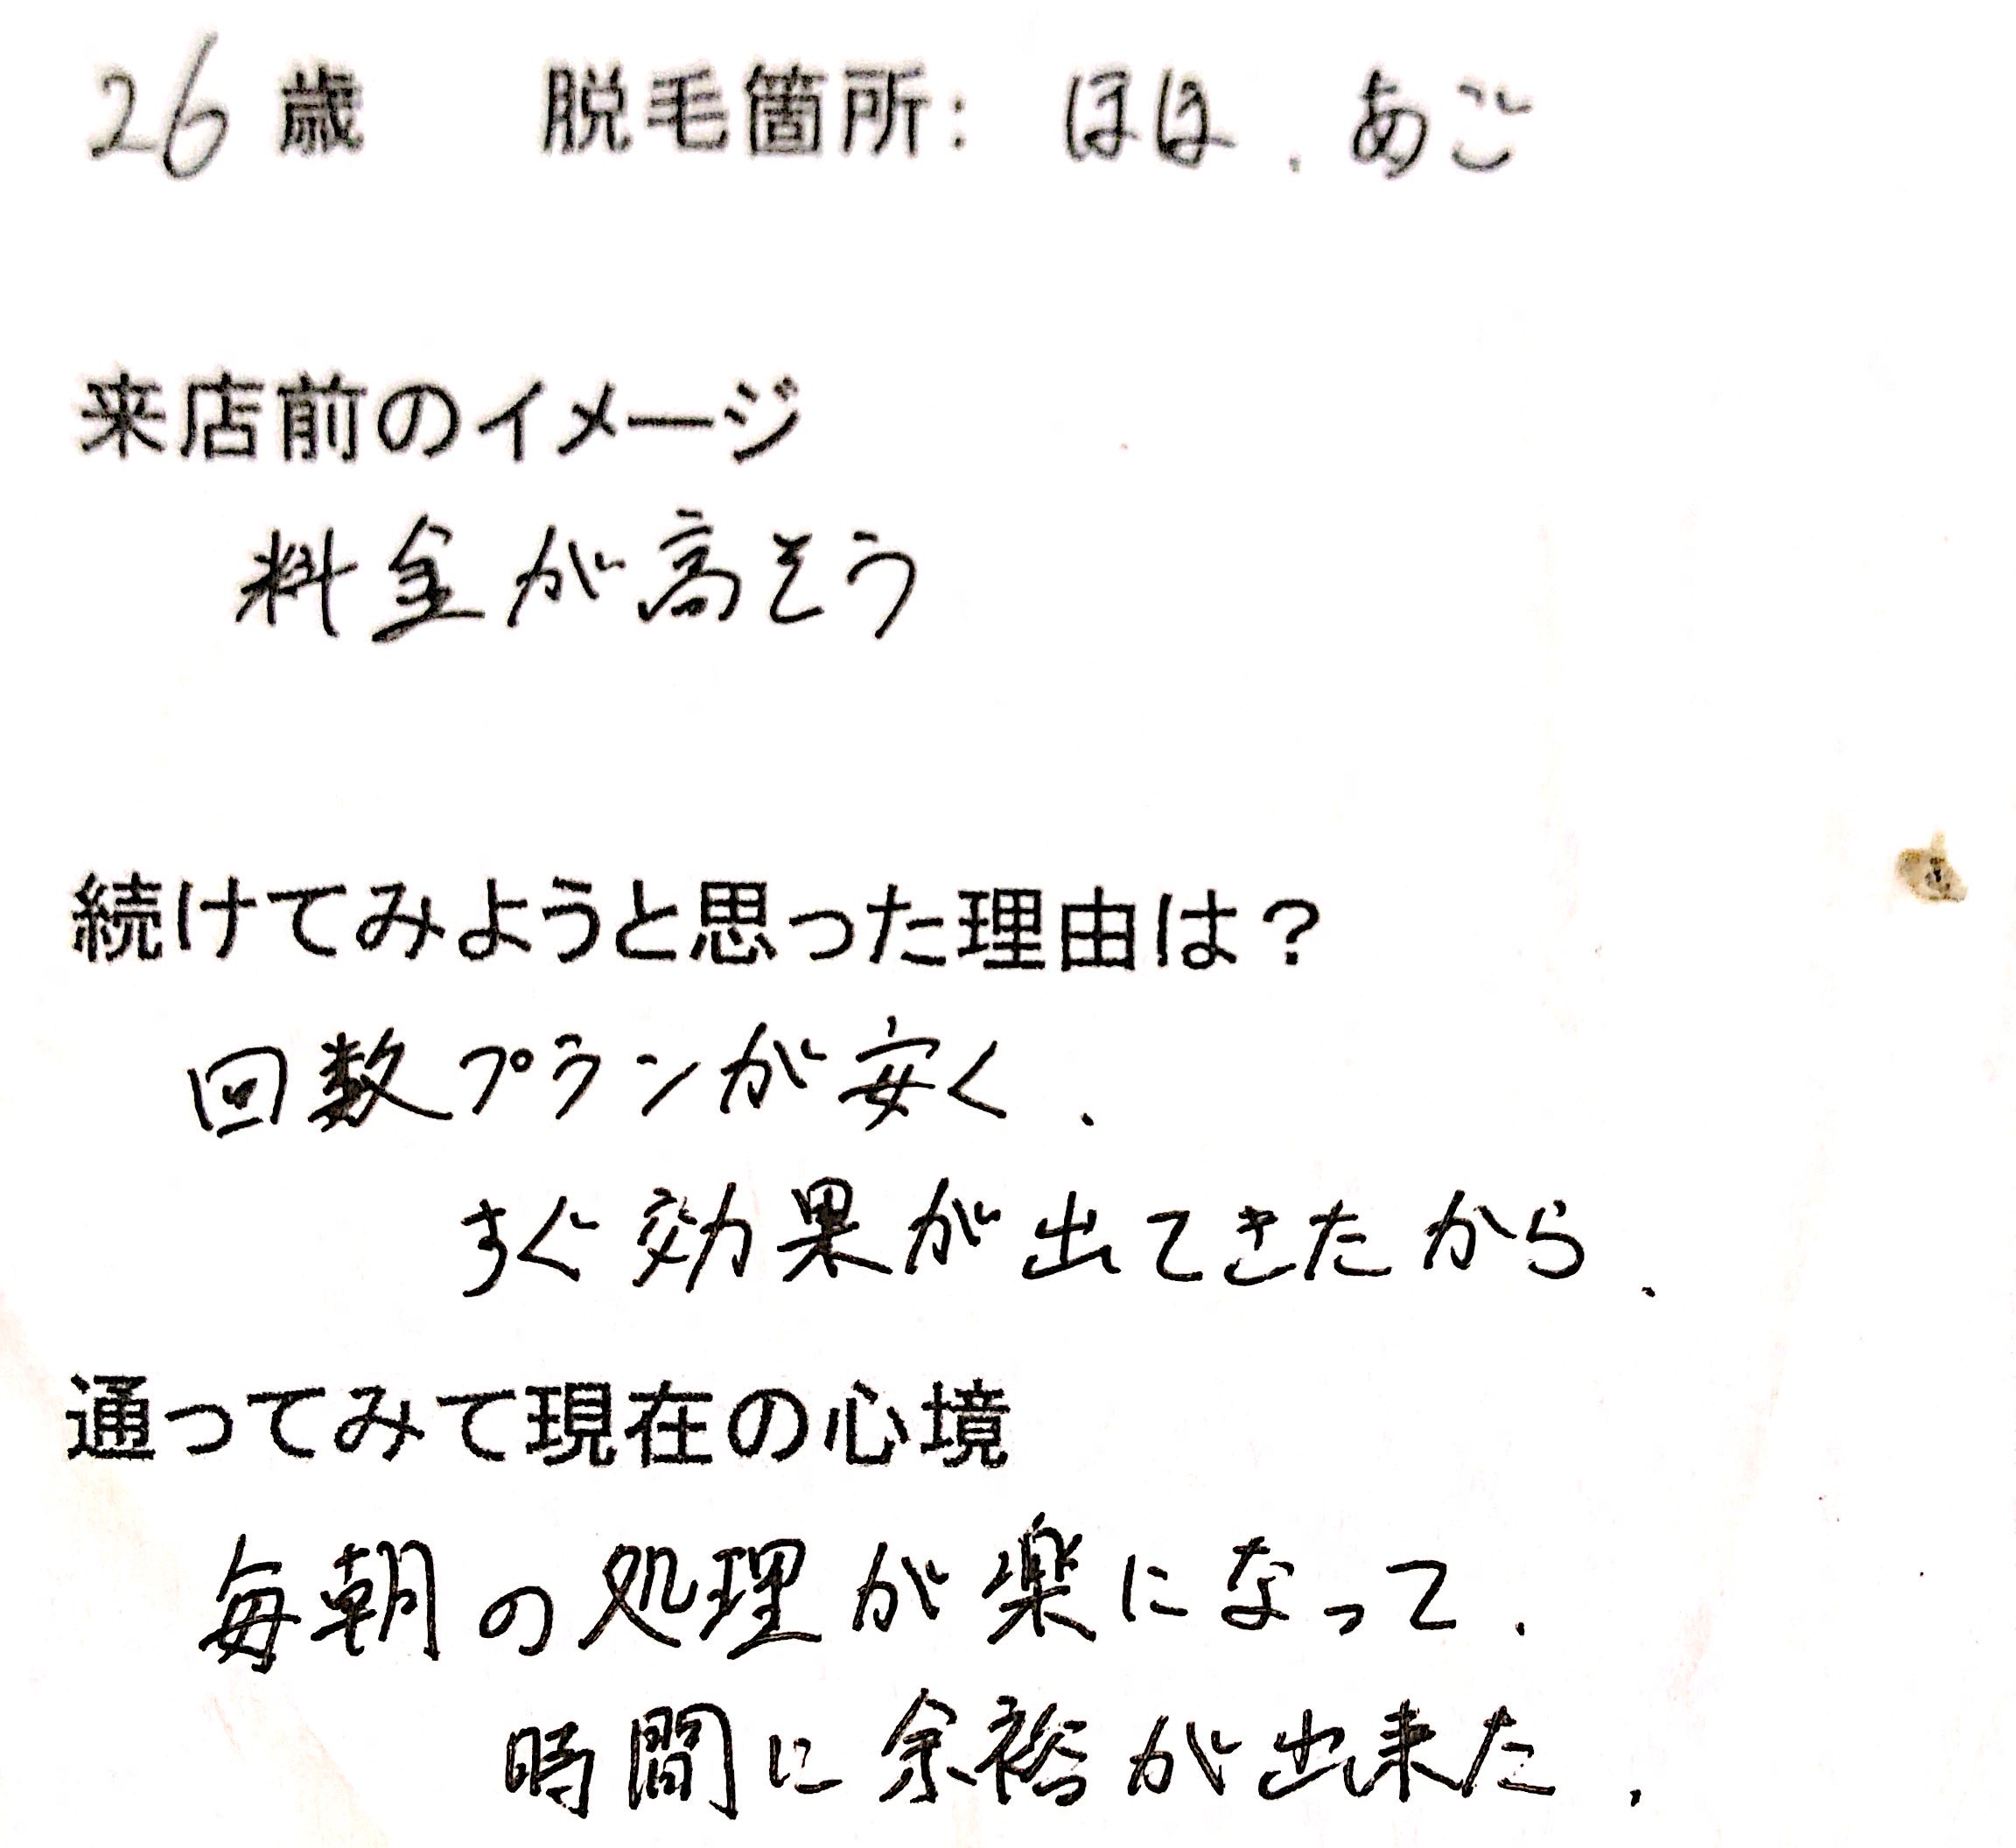 26歳 脱毛箇所: ほほ、あご
来店前のイメージ
料金が高そう
続けてみようと思った理由は？
回数プランが安く、
すぐ効果が出てきたから、
通ってみて現在の心境
毎朝の処理が楽になって、
時間に余裕が出来た、